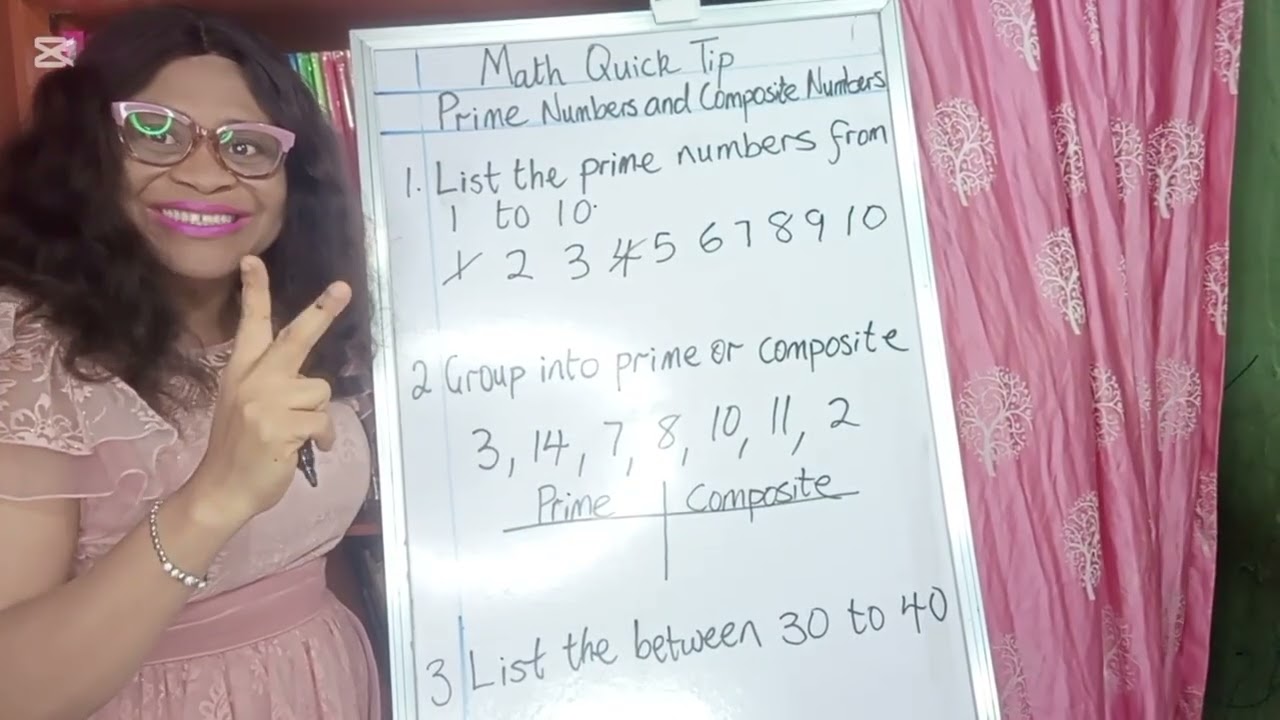 Math Quick Tip
Prime Numbers and Composite Numbers
1. List the prime numbers from
1 to 10.
1 2 3 4 5 6 7 8 9 10
2 Group into prime or composite
3, 14, 7, 8, 10, 11, 2
Prime Composite
3 List the between 30 to 40